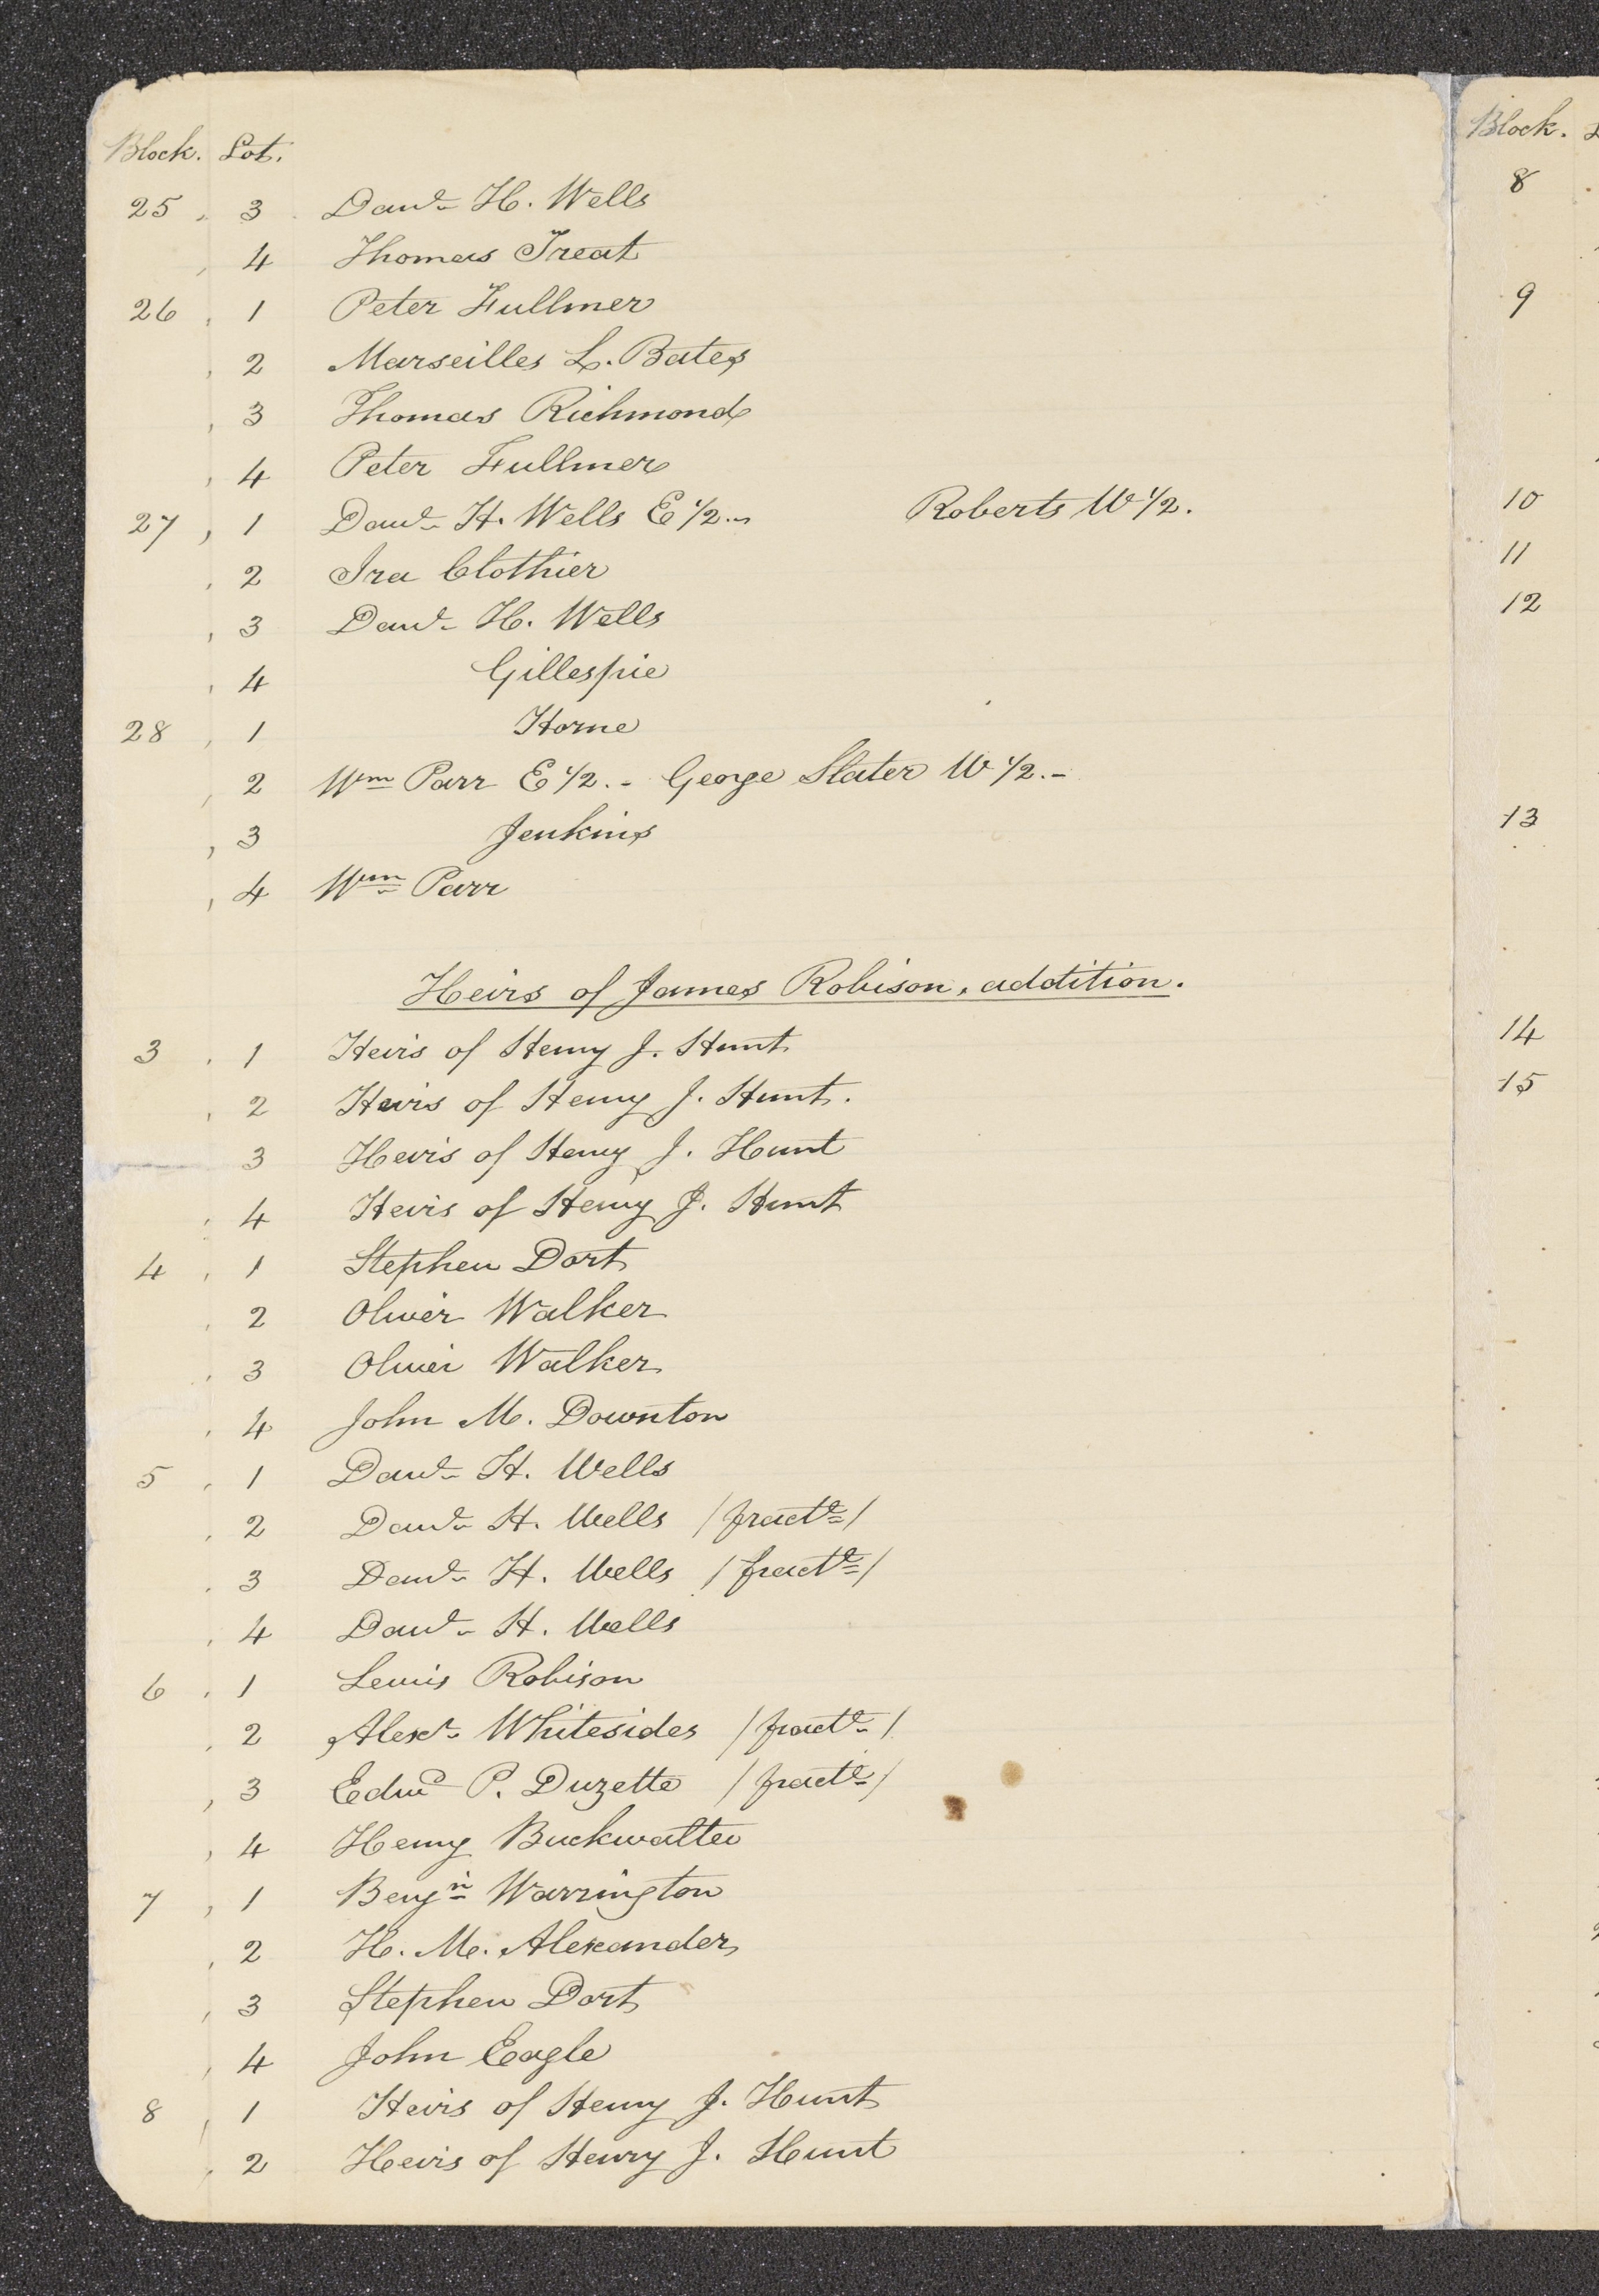 Block. Lot.
25 , 3 Danl. H. Wells
, 4 Thomas Treat
26 , 1 Peter Fullmer
, 2 Marseilles L. Bates
, 3 Thomas Richmond
, 4 Peter Fullmer
27 , 1 Danl. H. Wells E 1/2.~ Roberts W 1/2.
, 2 Ira Clothier
, 3 Danl. H. Wells
, 4 Gillespie
28 , 1 Horne
, 2 Wm Parr E 1/2. - George Slater W 1/2. -
, 3 Jenkins
, 4 Wm Parr
Heirs of James Robison, addition.
3 , 1 Heirs of Henry J. Hunt
, 2 Heirs of Henry J. Hunt.
3 Heirs of Henry J. Hunt
, 4 Heirs of Henry J. Hunt
4 , 1 Stephen Dort
, 2 Oliver Walker
, 3 Oliver Walker
, 4 John M. Downton
5 , 1 Danl. H. Wells
, 2 Danl. H. Wells /fractl/
, 3 Danl. H. Wells /fractl/
, 4 Danl. H. Wells
6 , 1 Lewis Robison
, 2 Alexr. Whitesides /fractl/
, 3 Edwd P. Duzette /fractl/
, 4 Henry Buckwalter
7 , 1 Benjn Warrington
, 2 H. M. Alexander
, 3 Stephen Dort
, 4 John Eagle
8 , 1 Heirs of Henry J. Hunt
, 2 Heirs of Henry J. Hunt
Block.
8
9
10
11
12
13
14
15